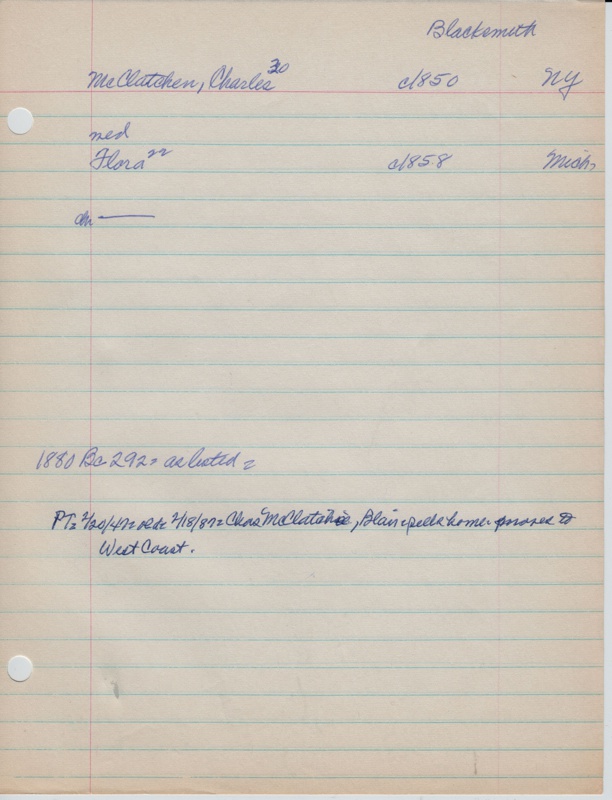 Blacksmith
McClutchen, Charles 30 c1850 NY
med
Flora 22 c1858 Mich,
ch —
1880 Bc 292 = as listed =
PT = 2/20/47 = old = 2/18/87 = Chas McClatchie, Blair, sells home moves to
West Coast.